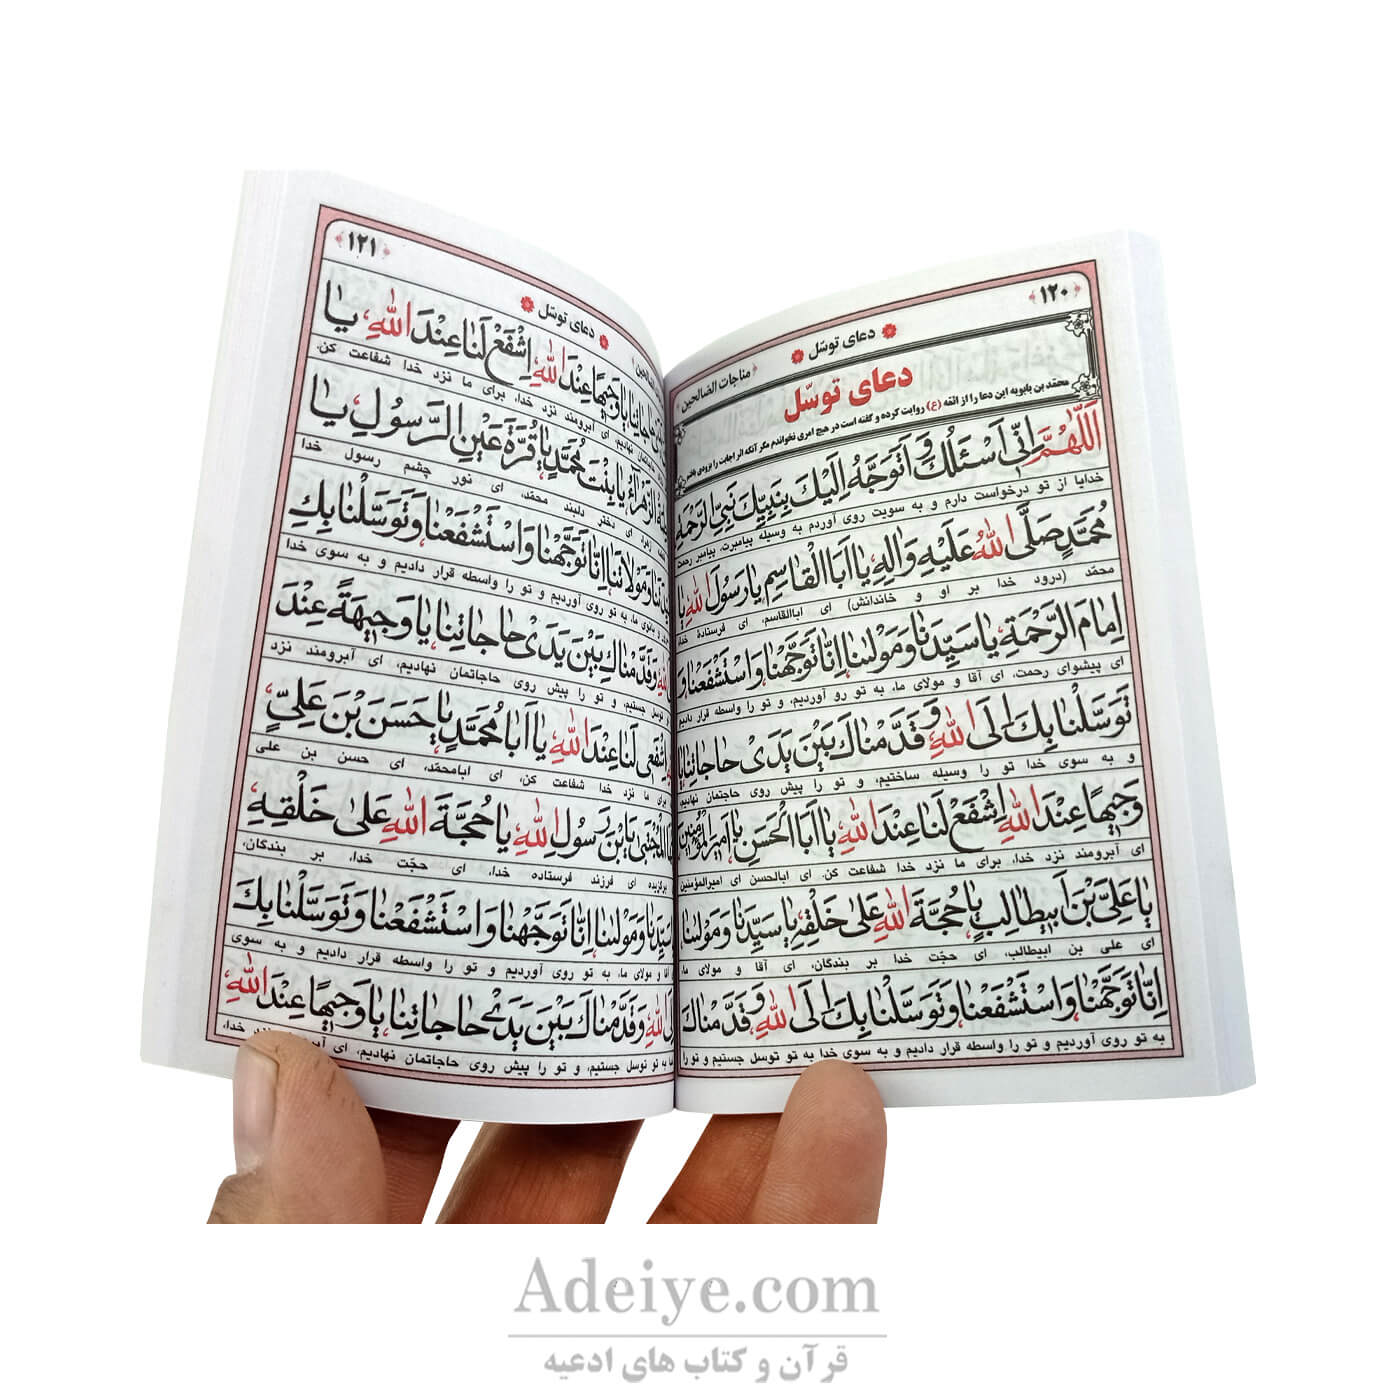 ﴿۱۲۰﴾
دعای توسّل
﴿مناجات الصالحین﴾
دعای توسّل
محمّد بن بابویه این دعا را از ائمّه (ع) روایت کرده و گفته است در هیچ امری نخواندم مگر آنکه اثر اجابت را بزودی یافتم
اَللّٰهُمَّ اِنّٖی اَسْئَلُكَ وَ اَتَوَجَّهُ اِلَیْكَ بِنَبِیِّكَ نَبِیِّ الرَّحْمَةِ
خدایا از تو درخواست دارم و به سویت روی آوردم به وسیله پیامبرت، پیامبر رحمت
مُحَمَّدٍ صَلَّی اللّٰهُ عَلَیْهِ وَ اٰلِهِ یٰا اَبَا الْقٰاسِمِ یٰا رَسُولَ اللّٰهِ یٰا
محمّد (درود خدا بر او و خاندانش) ای اباالقاسم، ای فرستادهٔ خدا
اِمٰامَ الرَّحْمَةِ یٰا سَیِّدَنٰا وَ مَوْلٰنٰا اِنّٰا تَوَجَّهْنٰا وَ اسْتَشْفَعْنٰا وَ
ای پیشوای رحمت، ای آقا و مولای ما، به تو رو آوردیم، و تو را واسطه قرار دادیم
تَوَسَّلْنٰا بِكَ اِلَی اللّٰهِ وَ قَدَّمْنٰاكَ بَیْنَ یَدَیْ حٰاجٰاتِنٰا یٰا
و به سوی خدا تو را وسیله ساختیم، و تو را پیش روی حاجاتمان نهادیم،
وَجِیهًا عِنْدَ اللّٰهِ اِشْفَعْ لَنٰا عِنْدَ اللّٰهِ یٰا اَبَا الْحَسَنِ یٰا اَمِیرَ الْمُؤْمِنِینَ
ای آبرومند نزد خدا، برای ما نزد خدا شفاعت کن، ای ابالحسن ای امیرالمؤمنین
یٰا عَلِیَّ بْنَ اَبِیطٰالِبٍ یٰا حُجَّةَ اللّٰهِ عَلیٰ خَلْقِهِ یٰا سَیِّدَنٰا وَ مَوْلٰنٰا
ای علی بن ابیطالب، ای حجّت خدا بر بندگان، ای آقا و مولای ما،
اِنّٰا تَوَجَّهْنٰا وَ اسْتَشْفَعْنٰا وَ تَوَسَّلْنٰا بِكَ اِلَی اللّٰهِ وَ قَدَّمْنٰاكَ
به تو روی آوردیم و تو را واسطه قرار دادیم و به سوی خدا به تو توسل جستیم و تو را
﴿۱۲۱﴾
دعای توسّل
حٰاجٰاتِنٰا یٰا وَجِیهًا عِنْدَ اللّٰهِ اِشْفَعْ لَنٰا عِنْدَ اللّٰهِ یٰا
حاجاتمان نهادیم، ای آبرومند نزد خدا، برای ما نزد خدا شفاعت کن،
الزَّهْرٰاءُ یٰا بِنْتَ مُحَمَّدٍ یٰا قُرَّةَ عَیْنِ الرَّسُولِ یٰا
ای دختر دلبند محمّد، ای نور چشم رسول خدا
وَ مَوْلاٰتَنٰا اِنّٰا تَوَجَّهْنٰا وَ اسْتَشْفَعْنٰا وَ تَوَسَّلْنٰا بِكِ
و بانوی ما، به تو روی آوردیم و تو را واسطه قرار دادیم و به سوی خدا
وَ قَدَّمْنٰاكِ بَیْنَ یَدَیْ حٰاجٰاتِنٰا یٰا وَجِیهَةً عِنْدَ
توسل جستیم، و تو را پیش روی حاجاتمان نهادیم، ای آبرومند نزد
اِشْفَعِی لَنٰا عِنْدَ اللّٰهِ یٰا اَبٰا مُحَمَّدٍ یٰا حَسَنَ بْنَ عَلِیٍّ
برای ما نزد خدا شفاعت کن، ای ابامحمّد، ای حسن بن علی
الْمُجْتَبیٰ یَابْنَ رَسُولِ اللّٰهِ یٰا حُجَّةَ اللّٰهِ عَلیٰ خَلْقِهِ
برگزیده ای فرزند فرستاده خدا، ای حجّت خدا، بر بندگان،
سَیِّدَنٰا وَ مَوْلٰنٰا اِنّٰا تَوَجَّهْنٰا وَ اسْتَشْفَعْنٰا وَ تَوَسَّلْنٰا بِكَ
آقا و مولای ما، به تو روی آوردیم و تو را واسطه قرار دادیم و به سوی
اللّٰهِ وَ قَدَّمْنٰاكَ بَیْنَ یَدَیْ حٰاجٰاتِنٰا یٰا وَجِیهًا عِنْدَ اللّٰهِ
به تو توسل جستیم، و تو را پیش روی حاجاتمان نهادیم، ای نزد خدا،
Adeiye.com
قرآن و کتاب های ادعیه